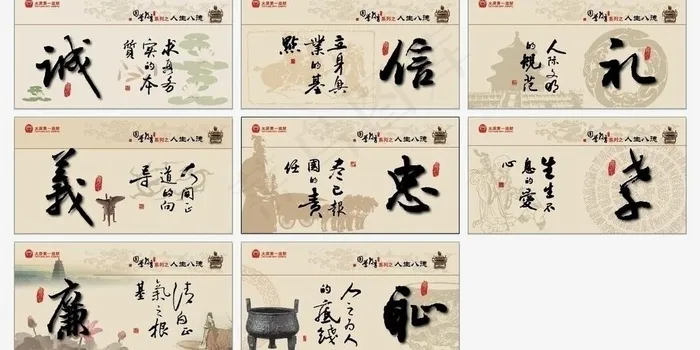 系列之 人生八德
诚
求真务
实的本
质
系列之 人生八德
立身兴
业的基
點
信
系列之 人生八德
人际文明
的规范
礼
系列之 人生八德
義
人间正
道的向
导
系列之 人生八德
尽己报
国的责
任
忠
系列之 人生八德
生生不
息的爱
心
孝
系列之 人生八德
廉
清白正
氣之根
基
系列之 人生八德
人之为人
的底线
耻